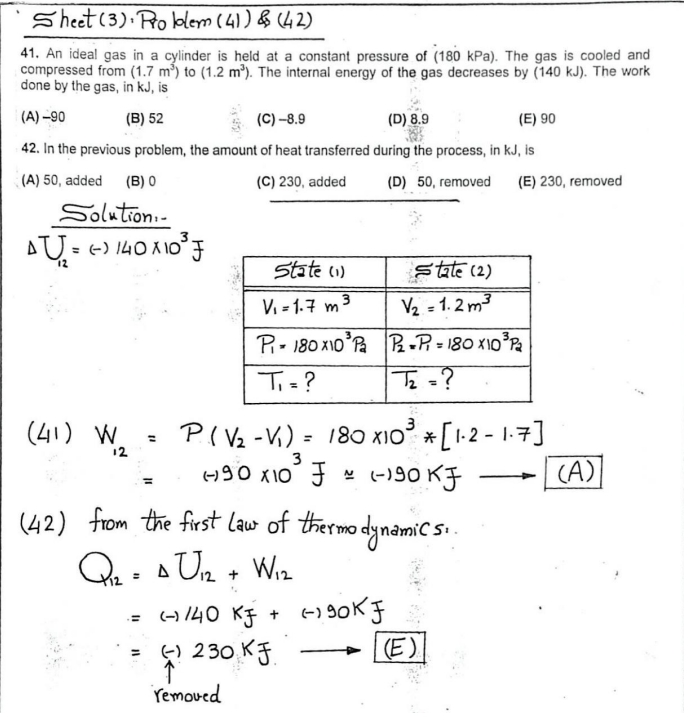 Sheet (3): Problem (41) & (42)
41. An ideal gas in a cylinder is held at a constant pressure of (180 kPa). The gas is cooled and
compressed from (1.7 m³) to (1.2 m³). The internal energy of the gas decreases by (140 kJ). The work
done by the gas, in kJ, is
(A) –90 (B) 52 (C) –8.9 (D) 8.9 (E) 90
42. In the previous problem, the amount of heat transferred during the process, in kJ, is
(A) 50, added (B) 0 (C) 230, added (D) 50, removed (E) 230, removed
Solution:-
ΔU₁₂ = (-) 140 x10³ J
State (1) State (2)
V₁ = 1.7 m³ V₂ = 1.2 m³
P₁ = 180 x10³ Pa P₂ = P₁ = 180 x10³ Pa
T₁ = ? T₂ = ?
(41) W₁₂ = P (V₂ - V₁) = 180 x10³ * [1.2 - 1.7]
= (-)90 x10³ J ≃ (-)90 KJ → (A)
(42) from the first Law of thermodynamics:.
Q₁₂ = ΔU₁₂ + W₁₂
= (-) 140 KJ + (-) 90KJ
= (-) 230 KJ → (E)
↑
removed